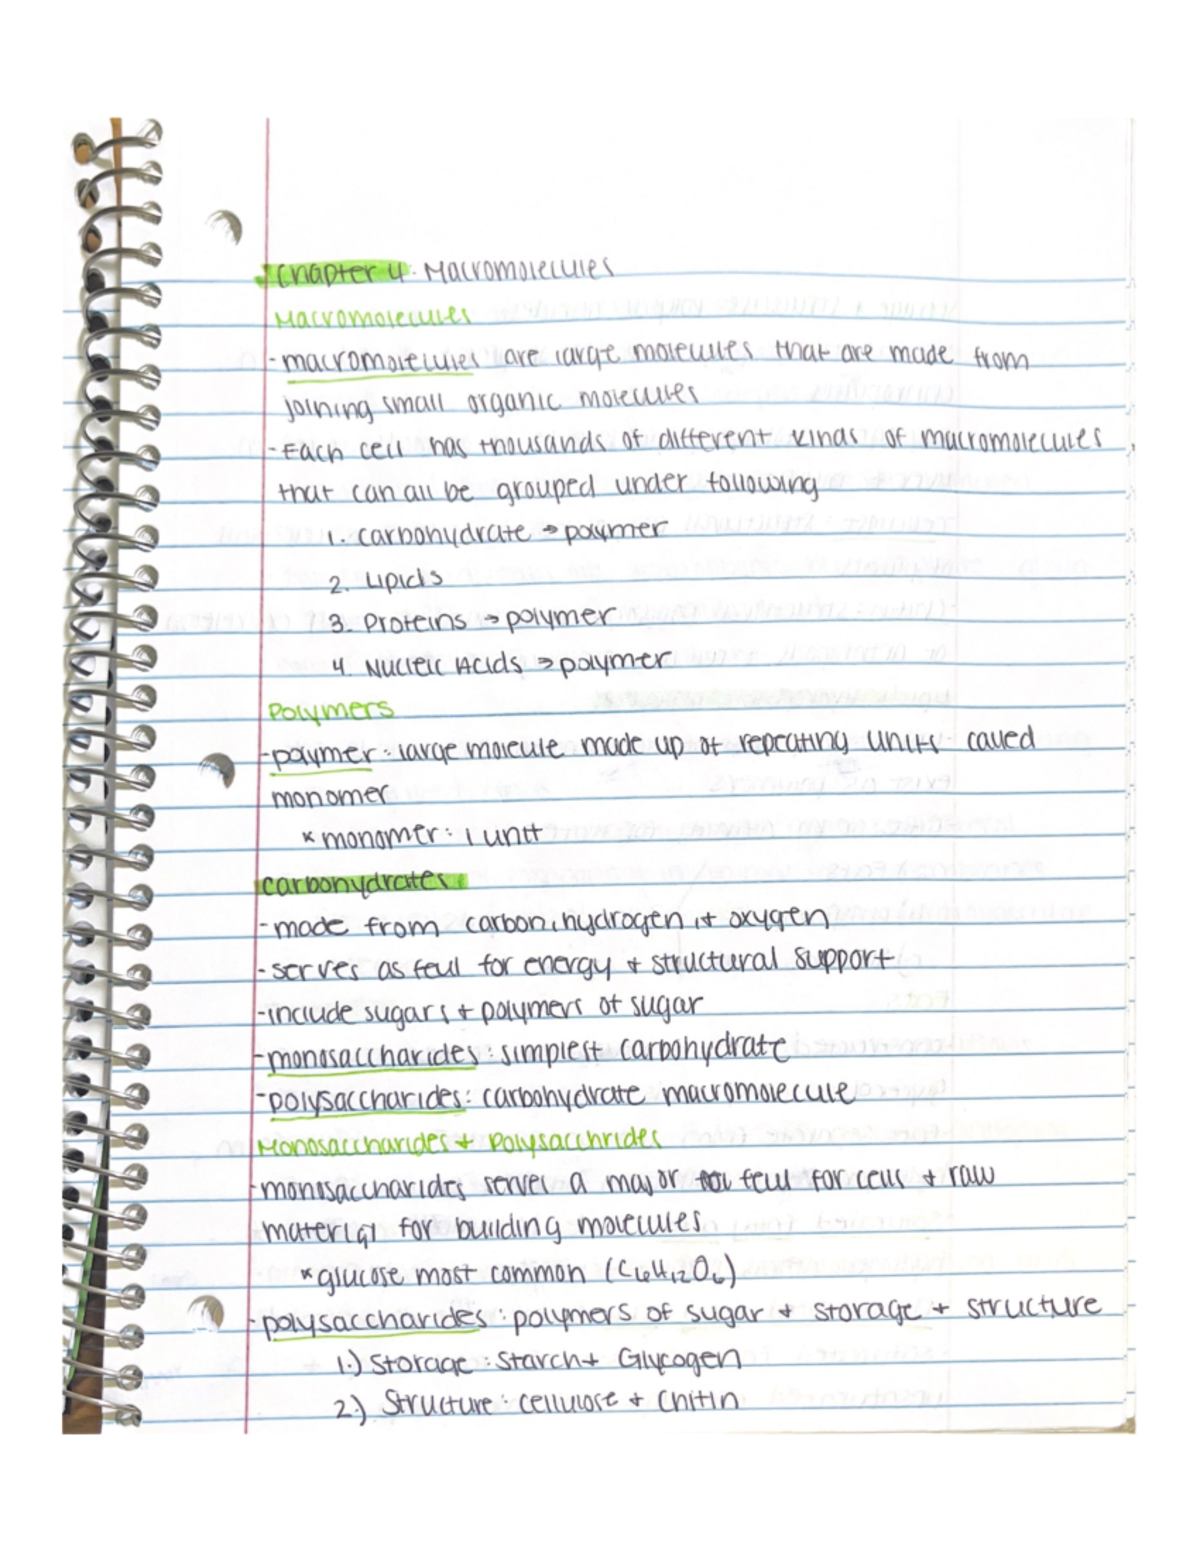 Chapter 4: Macromolecules
Macromolecules
- macromolecules are large molecules that are made from
joining small organic molecules
- Each cell has thousands of different kinds of macromolecules
that can all be grouped under following
1. carbohydrate → polymer
2. Lipids
3. Proteins → polymer
4. Nucleic Acids → polymer
Polymers
- polymer: large molecule made up of repeating units called
monomer
* monomer: 1 unit
carbohydrates
- made from carbon, hydrogen, + oxygen
- serves as feul for energy + structural support
- include sugars + polymers of sugar
- monosaccharides: simplest carbohydrate
- polysaccharides: carbohydrate macromolecule
Monosaccharides + Polysacchrides
- monosaccharides serves a major feul for cells + raw
material for building molecules
* glucose most common (C6H12O6)
- polysaccharides: polymers of sugar + storage + structure
1.) Storage: Starch + Glycogen
2.) Structure: cellulose + Chitin